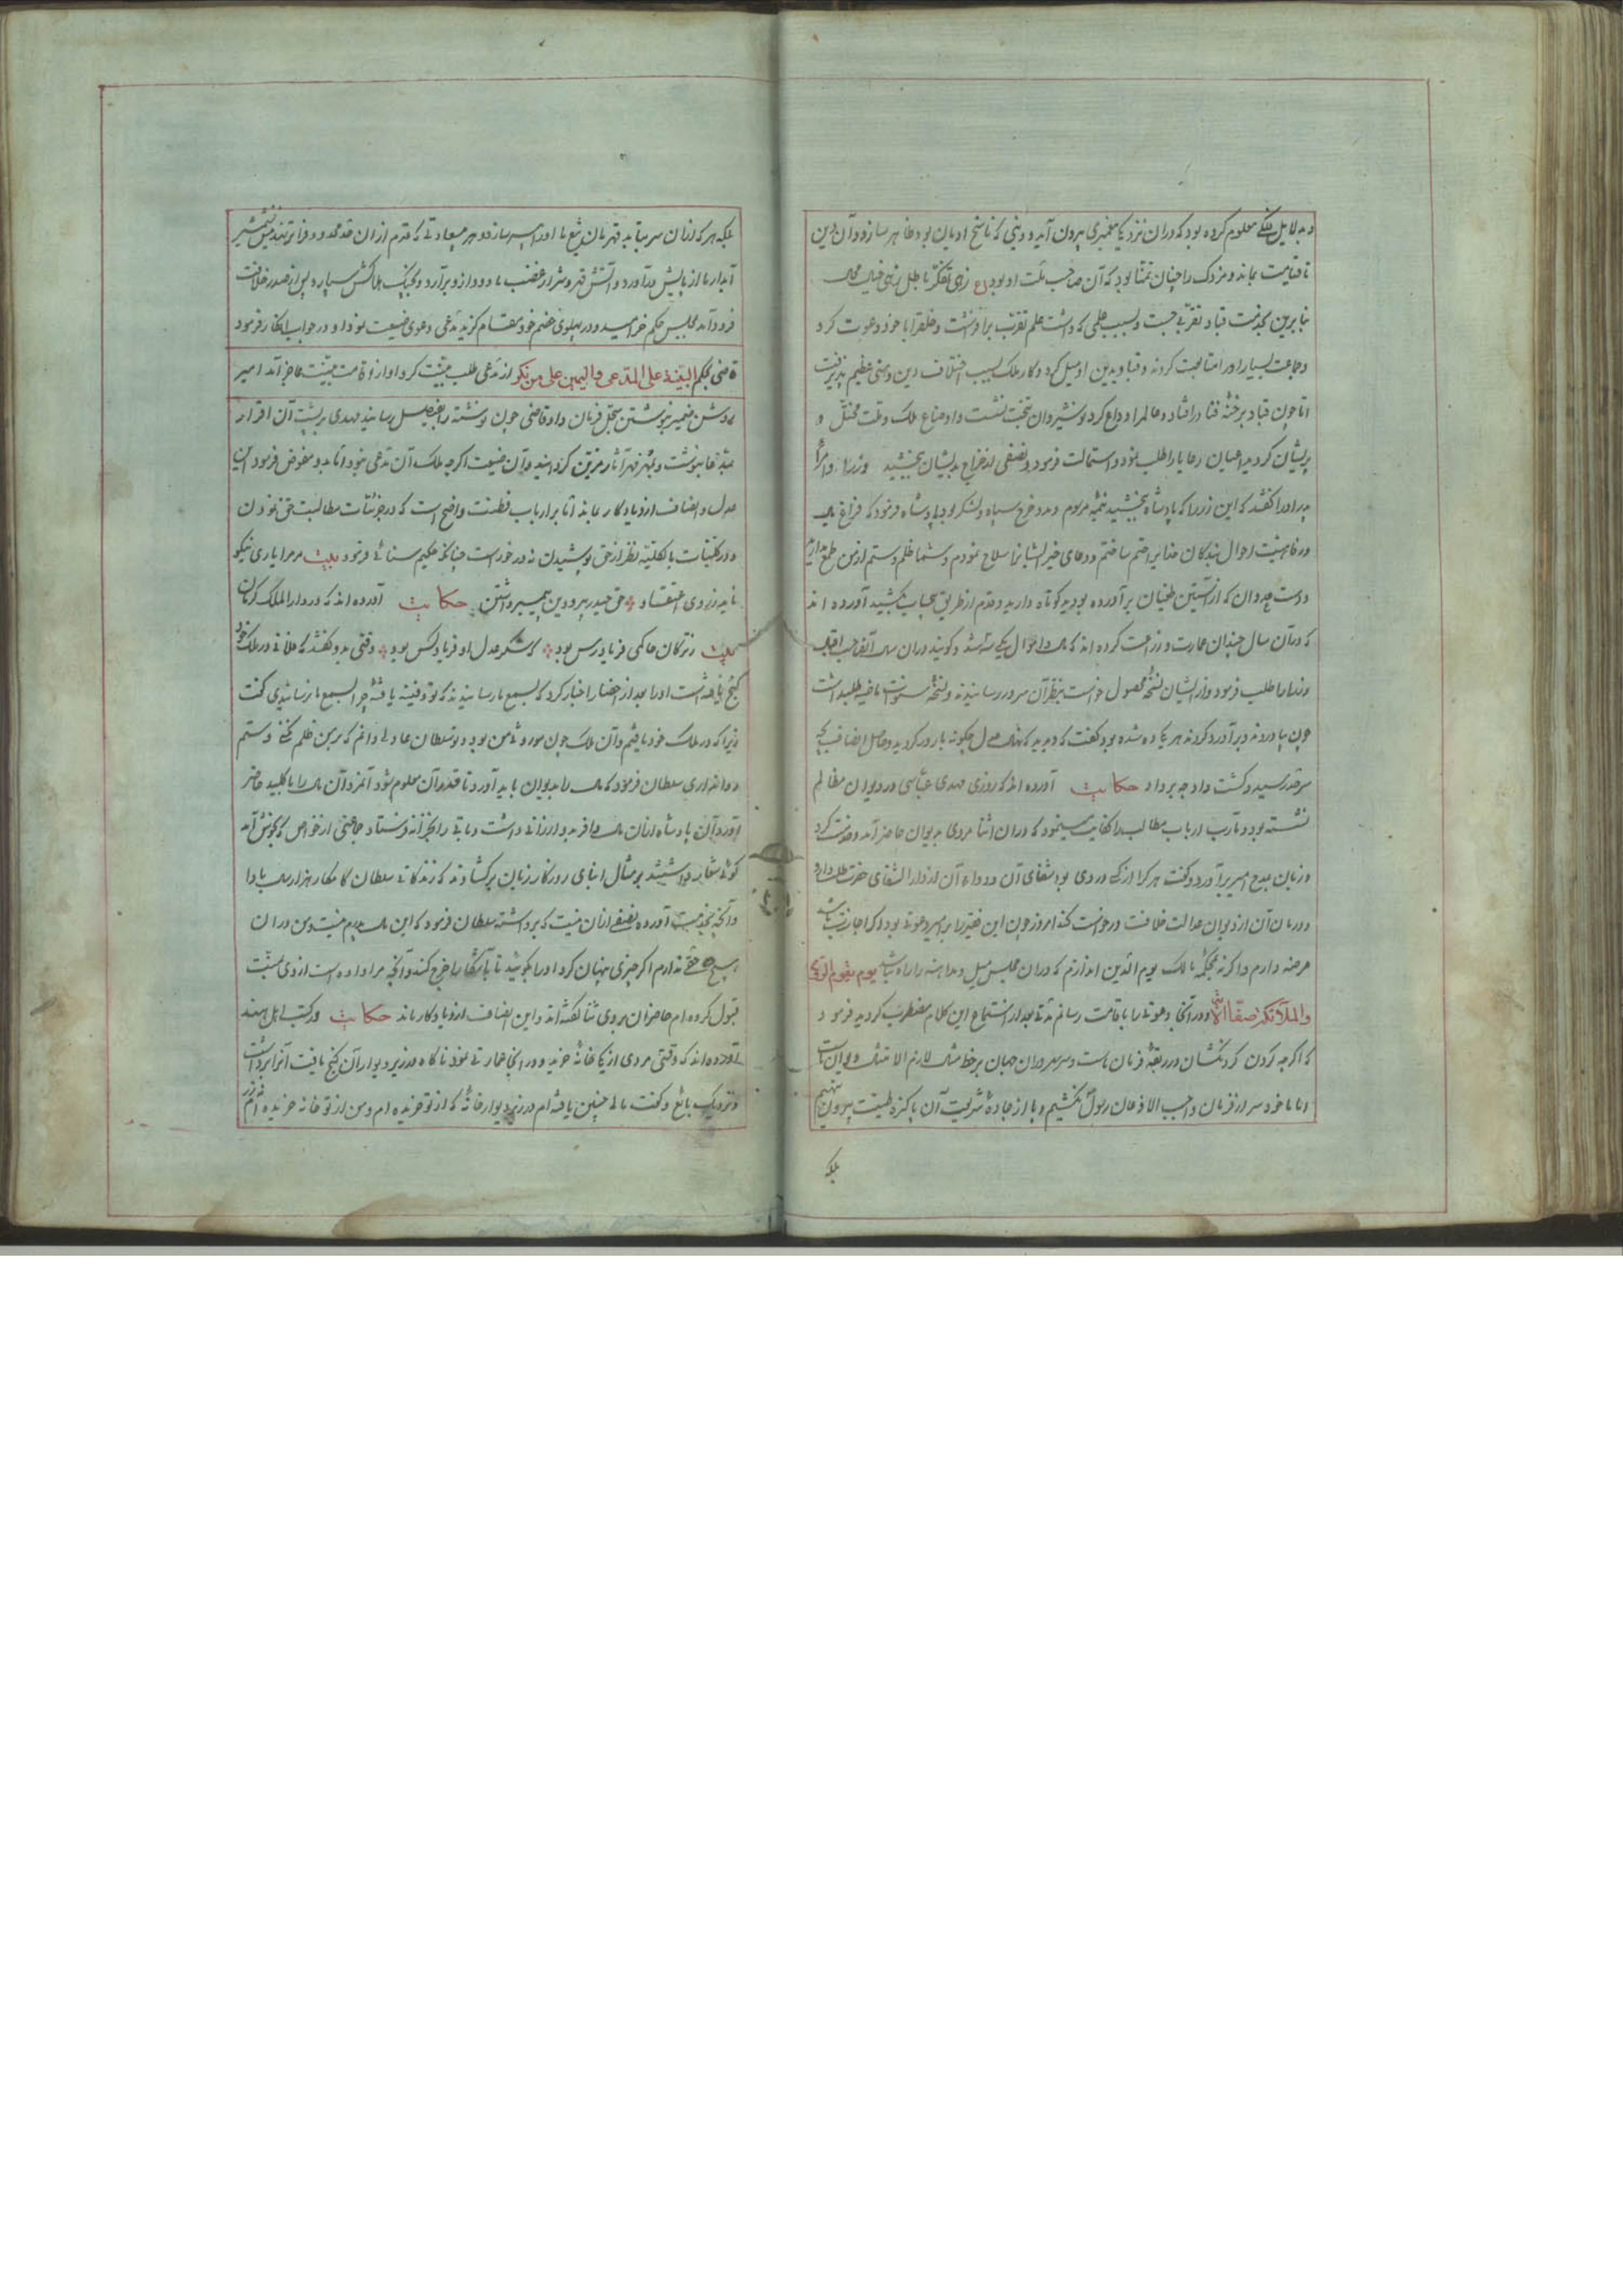 و بدلایل فلکی معلوم کرده بود که دران نزدیکی پیغمبری بیرون آید و دینی که ناسخ ادیان بود ظاهر سازد و آن دین
تا قیامت بماند و مزدک را چنان تمنا بود که آن صاحب ملت او بود ع زهی تفکر باطل زهی خیال محال
بنابرین بخدمت قباد تقربی جست و بسبب علمی که داشت علم تقرب برافراشت و خلق را با خود دعوت کرد
و جماعت بسیار او را متابعت کردند و قباد بدین او میل کرد و کار ملک بسبب اختلاف دین وهنی عظیم پذیرفت
اما چون قباد برخنه فنا درافتاد و عالم را وداع کرد نوشیروان بتخت نشست و اوضاع ملک و ملت مختل و
پریشان گردید اعیان رعایا را طلب نمود و استمالت فرمود و نصفی از خراج بدیشان بخشید وزرا و امرأ
پدر او را گفتند که این زر را که پادشاه بخشید تتمه مرسوم و مدد خرج سپاه و لشکر بود پادشاه فرمود که فراغ بال
و رفاهیت احوال بندگان خدا برا ختم ساختم و دعای خیر ایشانرا سلاح خودم و شما ظلم و ستم ازمن طمع مدارید
دست عدوان که از آستین طغیان برآورده بودید کوتاه دارید و قدم از طریق بکشید آورده اند
که در آن سال چندان عمارت و زراعت کرده اند که مال و احوال یکی سه شد و گویند دران سال
وزرا را طلب فرمود و از ایشان نسخه محصول خواست بنظر آن سرور رسانیدند و نسخه سنوات ماضیه طلب داشت
چون بیاوردند و برآورد کردند هر یکی ده شده بود گفت که دیدید که نهال عدل چگونه بارور گردید و حاصل انصاف بچه
سرحد رسید و کشت داد چه بر داد حکایت آورده اند که روزی مهدی عباسی در دیوان مظالم
نشسته بود و مآرب ارباب مطالب را کفایت مینمود که دران اثنا مردی بدیوان حاضر آمد و خدمت کرد
و زبان بمدح امیر برآورد و گفت هر کرا از کسی دردی بود شفای آن و دواء آن از دار الشفای حضرت طلب دارد
و درمان آن از دیوان عدالت خلافت درخواست کند امروز چون این فقیر را بر امیر دعوی بود اگر اجازت باشد
عرضه دارم و اگر نه بمحکمه مالک یوم الدین اندازم که دران مجلس میل و مداهنه را راه نباشد یوم یقوم الروح
والملائکة صفا الآیة و در آنجا دعوی را باقامت رسانم مهدی بعد از استماع این کلام مضطرب گردید فرمود
که اگر چه گردن گردنکشان در ربقه فرمان ماست و سر سروران جهان بر خط مثال لازم الامتثال دیوان ماست
اما ما خود سر از فرمان واجب الاذعان رسول نکشیم و پا از جاده شریعت آن پاکیزه طینت بیرون ننهیم
بلکه
بلکه هر که ازان سر بتابد قهرمان تیغ ما او را بی سر سازد و هر بیعادتی که قدم ازان حد محدود فراتر نهد پیش شمشیر
آبدار ما از پایش درآورد و آتش قهر و شرار غضب ما دود ازو برآرد و بخاک هلاکش سپارد پس از صدر خلافت
فرود آمد بمجلس حکم خرامید و در پهلوی خصم خود مقام گزید مدعی دعوی ضیعت نمود او در جواب انکار فرمود
قاضی بحکم البینة علی المدعی والیمین علی من انکر از مدعی طلب بینت کرد او از اقامت بینت عاجز آمد امیر
روشن ضمیر بنوشتن سجل فرمان داد قاضی چون نوشته را بفیصل رسانید مهدی بر پشت آن اقرار
مدعا بنوشت و بمهر مهر آثار مزین گردانید و آن ضیعت اگرچه ملک آن مدعی نبود اما بدو مفوض فرمود این
عدل و انصاف ازو یادگار بماند اما بر ارباب فطنت واضح است که در جزئیات مطالبت حق نمودن
و در کلیات بالکلیه نظر از حق پوشیدن نه درخورست چنانکه حکیم سنائی فرمود بیت مر مرا باری نیکو
ناید ز روی اعتقاد حق حیدر بردن و دین پیمبر داشتن حکایت آورده اند که در دار الملک کرمان
بیت ز ترکان حاکمی فریادرس بود که لشکر عدل او فریادکس بود وقتی بدو گفتند که فلانی در ملک خود
گنج یافته است او را بعد از احضار اخبار کرد که بسمع ما رسانیدند که تو دفینه یافته چرا بسمع ما نرسانیدی گفت
زیرا که در ملک خود یافتم و آن ملک چون موروثی من بود و تو سلطان عادلی دانم که بر من ظلم نکنی و ستم
روا نداری سلطان فرمود که مال را بدیوان باید آورد تا قدر آن معلوم شود آنمرد آن مال را با کلید حاضر
آورد آن پادشاه ازان مال وافر بدو ارزانی داشت و باقی را بخزانه فرستاد جماعتی از خواص که بگوش آمد
گوئی بمثال ابنای روزگار زبان برگشادند که زندگانی سلطان کامگار هزار سال بادا
و آنچه بخدمت آورده نصفی ازان نیست که برداشته سلطان فرمود که این مال مردم نیست و من دران
هیچ حقی ندارم اگر چیزی پنهان کرد او را بگوئید تا بآشکارا خرج کند و آنچه مرا داده است از وی منت
قبول کرده ام حاضران بروی ثنا گفته اند و این انصاف ازو یادگار ماند حکایت در کتب اهل هند
آورده اند که وقتی مردی از یکی خانه خرید و در آنجا عمارتی نمود ناگاه در زیر دیوار آن گنج یافت آنرا برداشت
و نزدیک بائع و گفت مالی چنین یافته ام در زیر دیوار خانه که از تو خریده ام و من از تو خانه خریده ام نه زر